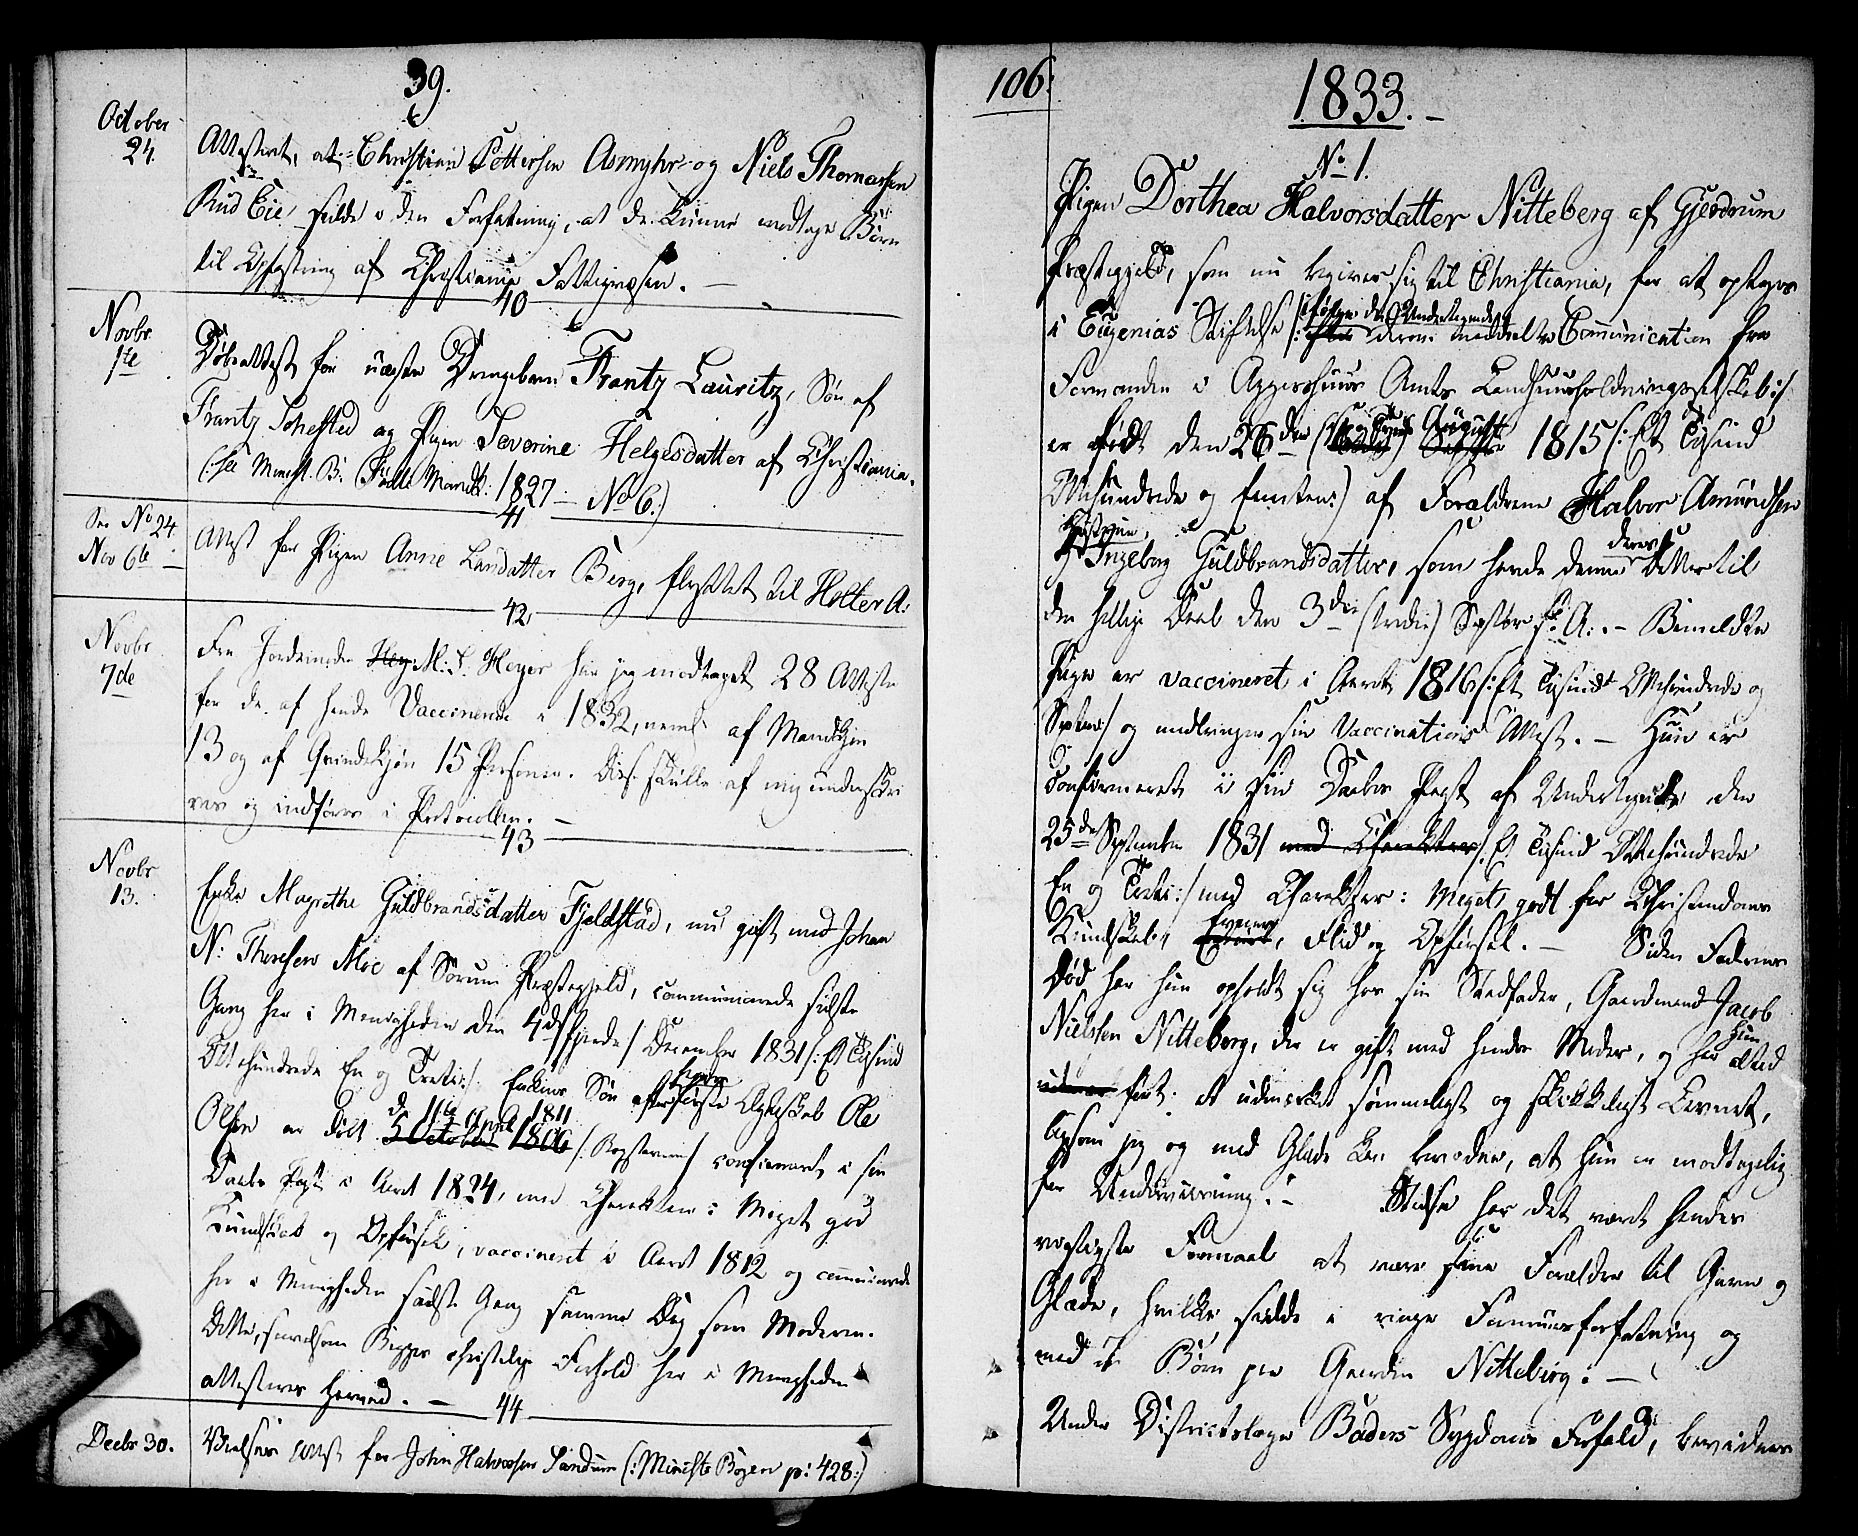 39.
October
24.
Attesteret, at Christian Pettersen Asmyhr og Niels Thomassen
Rud Eie, sidde i den Forfatning, at de kunne modtage Børn
til Opfostring af Christiania Fattigvæsen. —
40
Novbr
1te
Døbeattest for uægte Drengebarn Frantz Lauritz, Søn af
Frantz Sehested og Pigen Severine Helgesdatter af Christiania.
(: See Minist. B. Fødte Mandk: 1827 — No 6:)
41
See No 24.
Nov 6te
Attest for Pigen Anne Larsdatter Berg, flyttet til Holter A:
42
Novbr
7de
Fra Jordemoder Hey M: L. Heyer har jeg modtaget 28 Atteste
for de af hende Vaccinerede i 1832, neml: af Mandkjøn
13 og af Qvindekjøn 15 Personer. Disse skulle af mig underskri
ves og indføres i Protocollen. —
43
Novbr
13.
Enke Magrethe Guldbrandsdatter Fjeldstad, nu gift med Johan
N: Thoresen Moe af Sørum Præstegjeld, communicerede sidste
Gang her i Menigheden den 4de /fjerde/ December 1831 /: Et Tusind
Ottehundrede En og Treti :/. Enkens Søn af første Ægteskab Ole
Olsen er født 5 October 1806 d. 11te April 1811 /: / confirmeret i sin
Daabs Pagt i Aaret 1824, med Charakter: Meget god
Kundskab og Opførsel, vaccineret i Aaret 1812 og communicerede
her i Menigheden sidste Gang samme Dag som Moderen.
Dette, saavelsom Begges christelige Forhold her i Menigheden
attesteres herved. —
44
Decbr 30.
Vielses Attest for John Halvorsen Sandum (: Minist. Bogen p: 428:)
106:
1833. —
No 1.
Pigen Dorthea Halvorsdatter Nitteberg af Gjerdrum
Præstegjeld, som nu begiver sig til Christiania, for at optages
i Eugenias Stiftelse /: ifølge den Undertegnede derom meddeelte Communication fra
Formanden i Aggershuus Amts Landhuusholdningsselskab :/
er født den 26de (Sex og Tyvende) August 1815 /: Et Tusind
Ottehundrede og femten:) af Forældrene Halvor Amundsen
og Hustrue, Ingeborg Guldbrandsdatter, som havde denne deres Datter til
den hellige Daab den 3die (tredie) Septbr s: A:. — Bemeldte
Pige er vaccineret i Aaret 1816 /: Et Tusinde Ottehundrede og
Sexten :/ og medbringer sin Vaccinations Attest. — Hun er
confirmeret i sin Daabes Pagt af Undertegnede den
25de September 1831 med Charakter /: Et Tusind Ottehundrede
En og Treti :/ med Charakter: Meget godt for Christendoms
Kundskab, Evner, Flid og Opførsel. — Siden Faderens
Død har hun opholdt sig hos sin Stedfader, Gaardmand Jacob
Nielsen Nitteberg, der er gift med hendes Moder, og har hun altid
ført et udmærket sømmeligt og skikkeligt Levnet,
ligesom jeg og med Glæde kan bevidne, at hun er modtagelig
for Underviisning. — Stedse har det været hendes
vigtigste Formaal at være sine Forældre til Gavn og
Glæde, hvilke sidde i ringe Formuesforfatning og
med Børn paa Gaarden Nitteberg. —
Under Districtslæge Baders Sygdoms Forfald, bevidnes